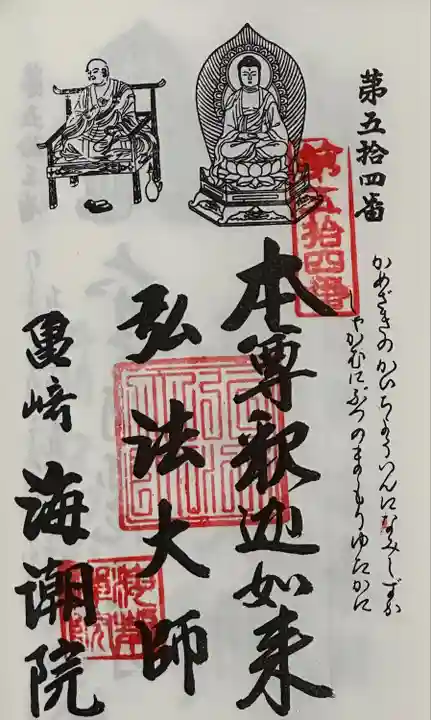 第五拾四番
第五拾四番
かめざきのかいちょういんになみしずか
しゃかむにぶつのまもりゆたかに
本尊釈迦如来
弘法大師
亀崎 海潮院